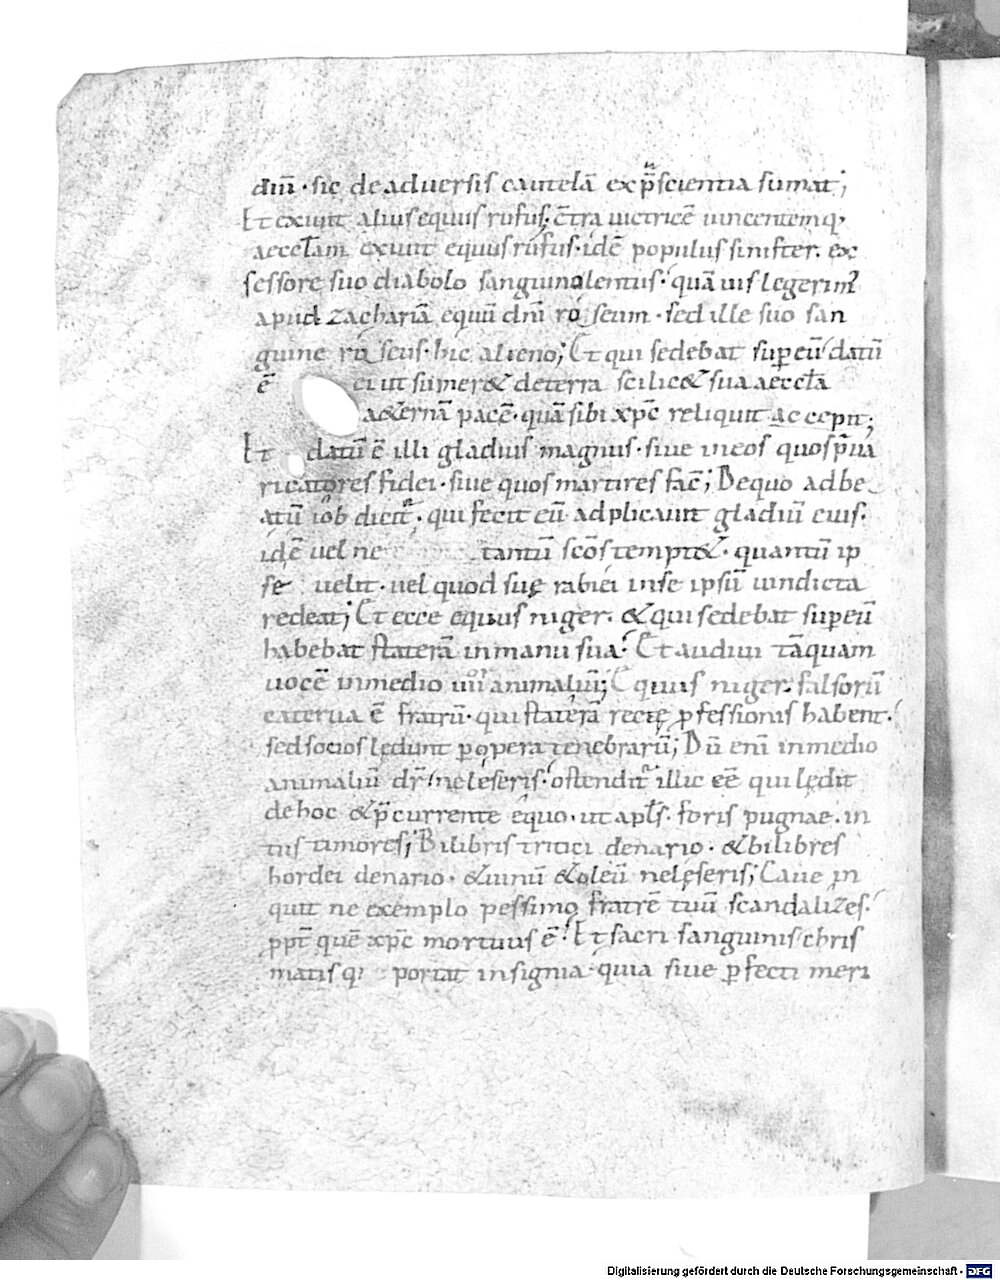 diū · sic de aduersis cautelā ex p̄scientia sumat;
Et exiuit alius equus rufus; c̄tra uictricē uincentemq;
aeccl̄am exiuit equus rufus · idē populus sinister · ex
sessore suo diabolo sanguinolentus · quā uis legerim᷒
apud zachariā equū dn̄i roseum · sed ille suo san
guine roseus · hic alieno; Et qui sedebat sup eū datū
ē ei ut sumer& de terra scilic& sua aeccl̄a
a&ernā pacē · quā sibi xp̄c reliquit accepit;
Et datū ē illi gladius magnus · siue in eos quos p̄ua
ricatores fidei · siue quos martires fac̄; De quo ad be
atū iob dicit᷒ · qui fecit eū adplicauit gladiū eius ·
idē uel ne tantū sc̄os tempt& · quantū ip
se uelit · uel quod suę rabiei in se ipsū uindicta
redeat; Et ecce equus niger · & qui sedebat sup eū
habebat staterā in manu sua · Et audiui tāquam
uocē in medio iiii animaliū; Equus niger · falsorū
caterua ē fratrū · qui staterā rectę pfessionis habent ·
sed socios lędunt p opera tenebrarū; Dū eni in medio
animaliū dr̄ · ne leseris · ostendit᷒ illic eē qui lędit
de hoc & p̄currente equo · ut apl̄s · foris pugnae · in
tus timores; Bilibris tritici denario · & bilibres
hordei denario · & uinū & oleū ne lęseris; Caue in
quit ne exemplo pessimo fratrē tuū scandalizes ·
ppt̄ quē xp̄c mortuus ē · Et sacri sanguinis chris
matisq; portat insignia · quia siue pfecti meri
Digitalisierung gefördert durch die Deutsche Forschungsgemeinschaft - DFG